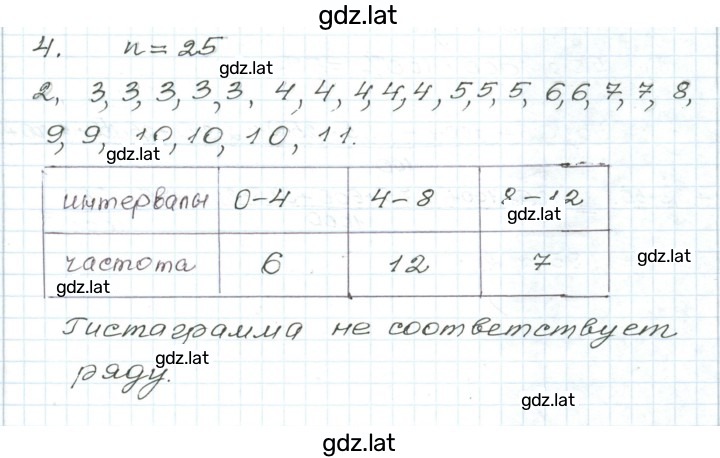 gdz.lat
4. n = 25
gdz.lat
2, 3, 3, 3, 3, 3, 4, 4, 4, 4, 4, 5, 5, 5, 6, 6, 7, 7, 8,
9, 9, 10, 10, 10, 11.
gdz.lat
интервалы 0-4 4-8 8-12
gdz.lat
частота 6 12 7
gdz.lat
gdz.lat
Гистаграмма не соответствует
gdz.lat
ряду.
gdz.lat
gdz.lat